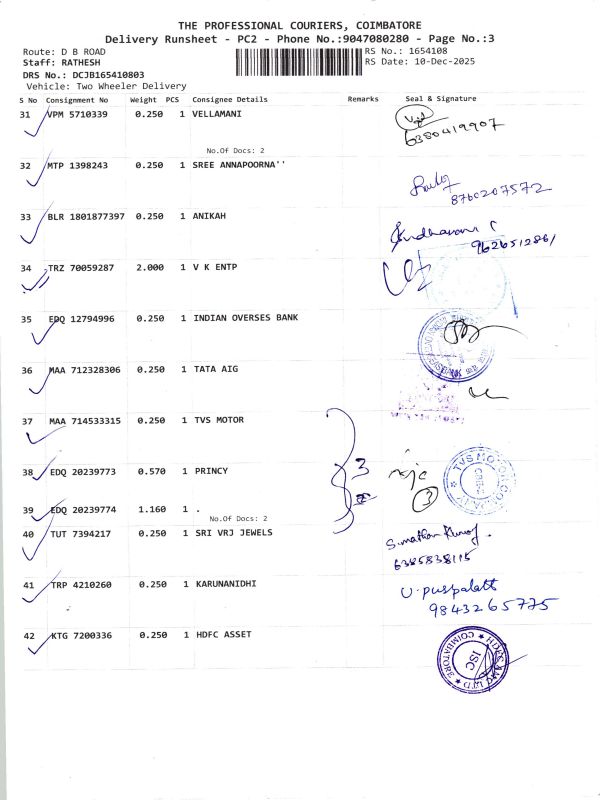 THE PROFESSIONAL COURIERS, COIMBATORE
Delivery Runsheet - PC2 - Phone No.:9047080280 - Page No.:3
Route: D B ROAD
RS No.: 1654108
Staff: RATHESH
RS Date: 10-Dec-2025
DRS No.: DCJB165410803
Vehicle: Two Wheeler Delivery
S No Consignment No Weight PCS Consignee Details Remarks Seal & Signature
31 VPM 5710339 0.250 1 VELLAMANI
6380419907
No.Of Docs: 2
32 MTP 1398243 0.250 1 SREE ANNAPOORNA''
8760207572
33 BLR 1801877397 0.250 1 ANIKAH
9626512861
34 TRZ 70059287 2.000 1 V K ENTP
35 EDQ 12794996 0.250 1 INDIAN OVERSES BANK
36 MAA 712328306 0.250 1 TATA AIG
37 MAA 714533315 0.250 1 TVS MOTOR
38 EDQ 20239773 0.570 1 PRINCY
3
3
TVS MOTOR COMPANY
39 EDQ 20239774 1.160 1 .
No.Of Docs: 2
40 TUT 7394217 0.250 1 SRI VRJ JEWELS
6385838115
41 TRP 4210260 0.250 1 KARUNANIDHI
U. puspalatt
9843265775
42 KTG 7200336 0.250 1 HDFC ASSET
COIMBATORE
ISC